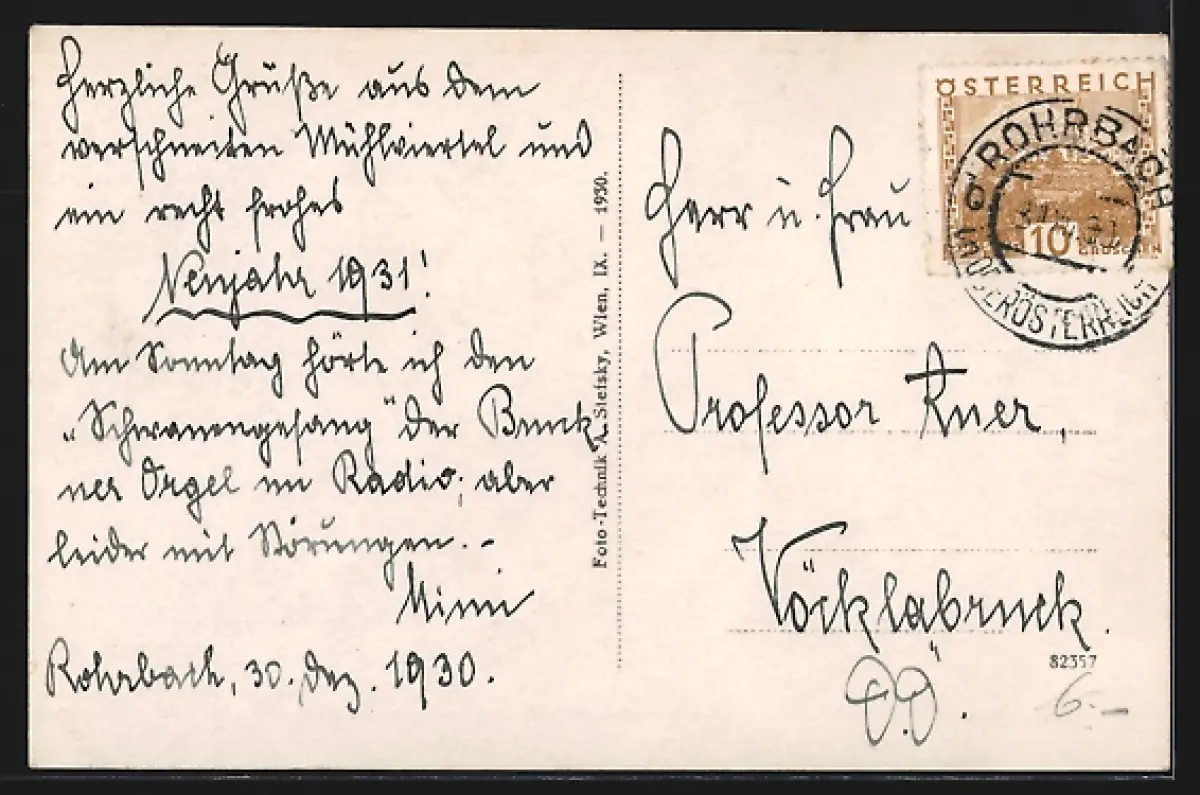 Herzliche Grüße aus dem
verschneiten Mühlviertel und
ein recht frohes
Neujahr 1931!
Am Sonntag hörte ich den
„Schwanengesang" der Bruck
ner Orgel im Radio; aber
leider mit Störungen. –
Mimi
Rohrbach, 30. Dez. 1930.
Foto-Technik A. Stefsky, Wien, IX. — 1930.
ÖSTERREICH
10
GROSCHEN
ROHRBACH
OBERÖSTERREICH
Herr u. Frau
Professor
Vöcklabruck.
O.Ö.
82357
6.–